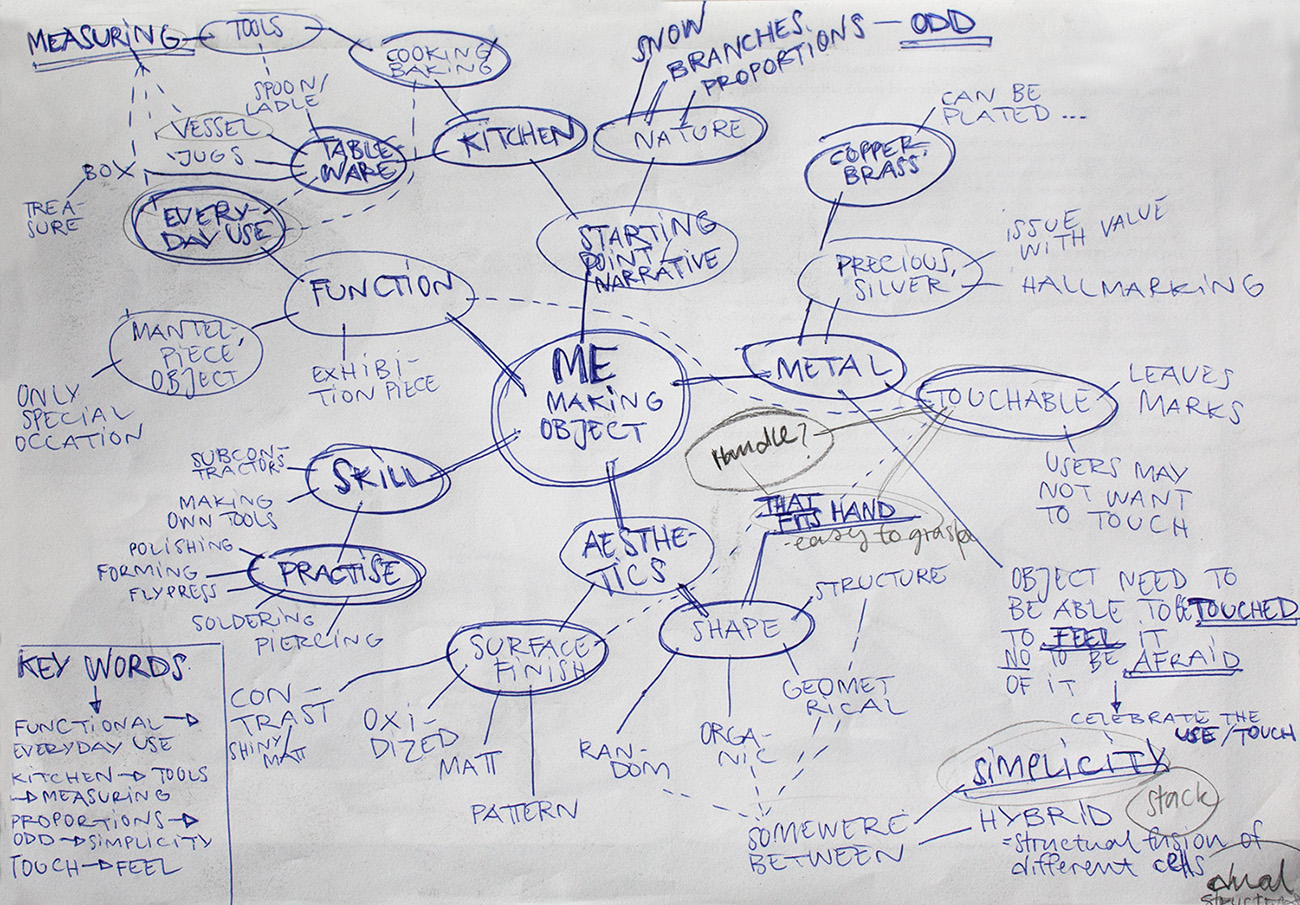 MEASURING
TOOLS
COOKING
BAKING
SPOON/
LADLE
VESSEL
JUGS
BOX
TREA-
SURE
TABLE
WARE
KITCHEN
EVERY-
DAY USE
SNOW
BRANCHES.
PROPORTIONS — ODD
NATURE
STARTING
POINT/
NARRATIVE
COPPER
BRASS
CAN BE
PLATED ...
PRECIOUS,
SILVER
ISSUE
WITH VALUE
HALLMARKING
FUNCTION
MANTEL-
PIECE,
OBJECT
ONLY
SPECIAL
OCCATION
EXHIBI-
TION PIECE
ME
MAKING
OBJECT
METAL
TOUCHABLE
LEAVES
MARKS
USERS MAY
NOT WANT
TO TOUCH
Handle?
THAT
FITS HAND
-easy to grasp
SKILL
SUBCON-
TRACTORS
MAKING
OWN TOOLS
PRACTISE
POLISHING
FORMING
FLYPRESS
SOLDERING
PIERCING
AESTHE-
TICS
SURFACE
FINISH
CON-
TRAST
SHINY/
MATT
OXI-
DIZED
MATT
PATTERN
SHAPE
STRUCTURE
GEOMET
RICAL
ORGA-
NIC
RAN-
DOM
SOMEWERE
BETWEEN
SIMPLICITY
stack
HYBRID
=structural fusion of
different cells
dual
OBJECT NEED TO
BE ABLE TO BE TOUCHED
TO FEEL IT
NO TO BE AFRAID
OF IT
CELEBRATE THE
USE/TOUCH
KEY WORDS
FUNCTIONAL →
EVERYDAY USE
KITCHEN → TOOLS
→ MEASURING
PROPORTIONS →
ODD → SIMPLICITY
TOUCH → FEEL